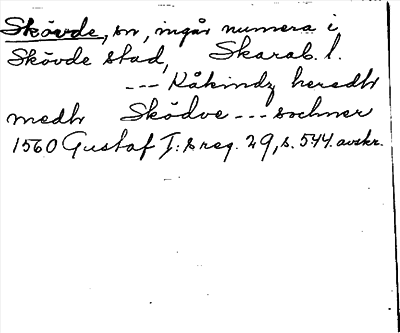 Skövde, sn, ingår numera i
Skövde stad, Skarab. l.
--- Kåkindz heredhr
medhr Sködve --- sochner
1560 Gustaf I:s reg. 29, s. 544. avskr.